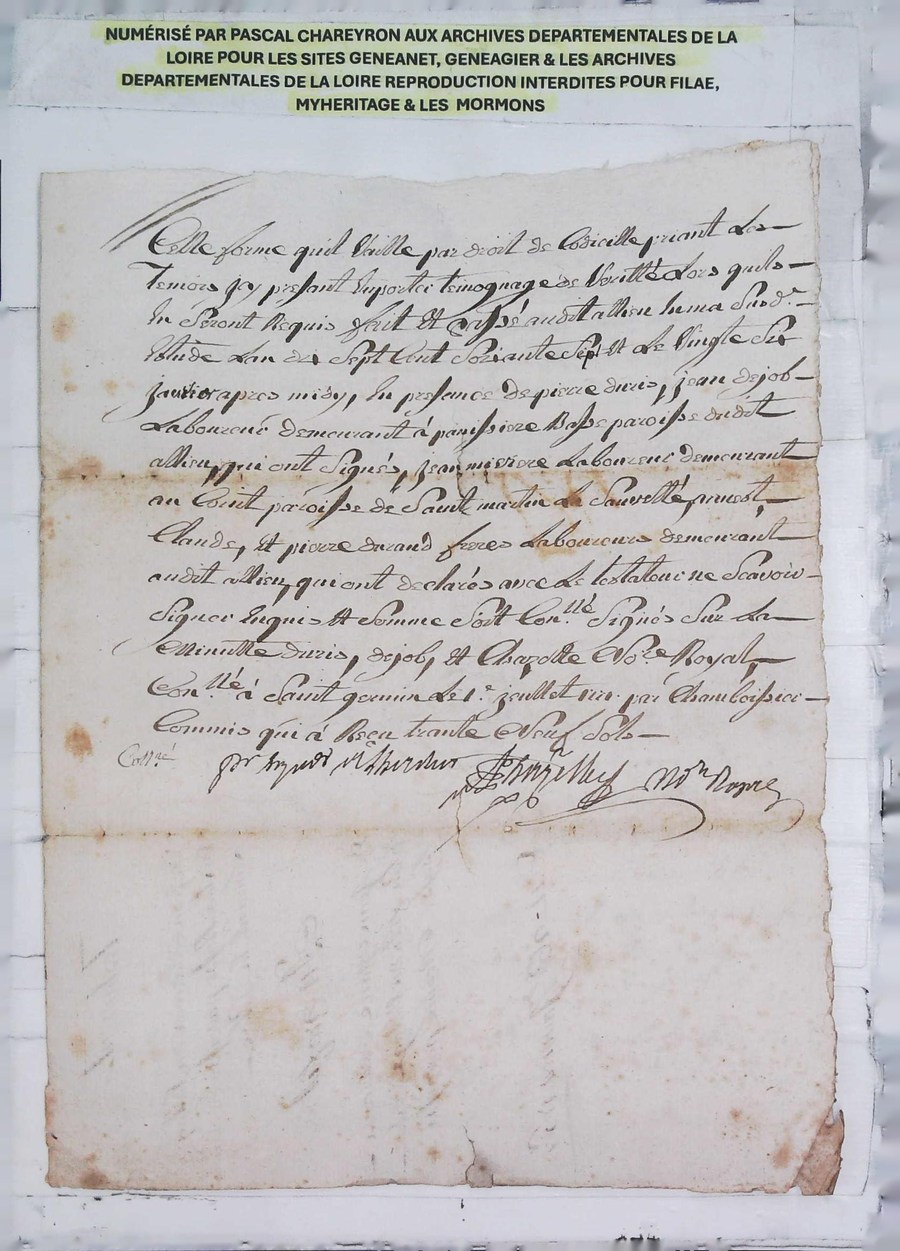 NUMÉRISÉ PAR PASCAL CHAREYRON AUX ARCHIVES DEPARTEMENTALES DE LA
LOIRE POUR LES SITES GENEANET, GENEAGIER & LES ARCHIVES
DEPARTEMENTALES DE LA LOIRE REPRODUCTION INTERDITES POUR FILAE,
MYHERITAGE & LES MORMONS
Telle forme quil Vaille par droit de Codicille priant Les
Temoins icy presant En porter temognage de Verité Lors quils
En Seront Requis fait Et passé audit allieu En ma Susd.e
Etude Lan dix Sept Cent Soixante Sept Et Le Vingte Six
janvier apres midy, En presance de pierre duris, jean dejob
Laboureur demeurant à panissiere Basse paroisse dudit
allieu, qui ont Signés, jean miviere Laboureur demeurant
au Coint paroisse de Saint martin La Sauvetté,
Claude, Et pierre durand freres Laboureurs demeurant
audit allieu, qui ont declarés avec Le testateur ne Scavoir
Signer Enquis Et Somme Soit Con.llé Signés Sur La
Minutte duris, dejob, Et Chazotte No.re Royal,
Con.llé à Saint germin Le 1.e par Chamboissier
Commis qui à Reçu trante Neuf Sols